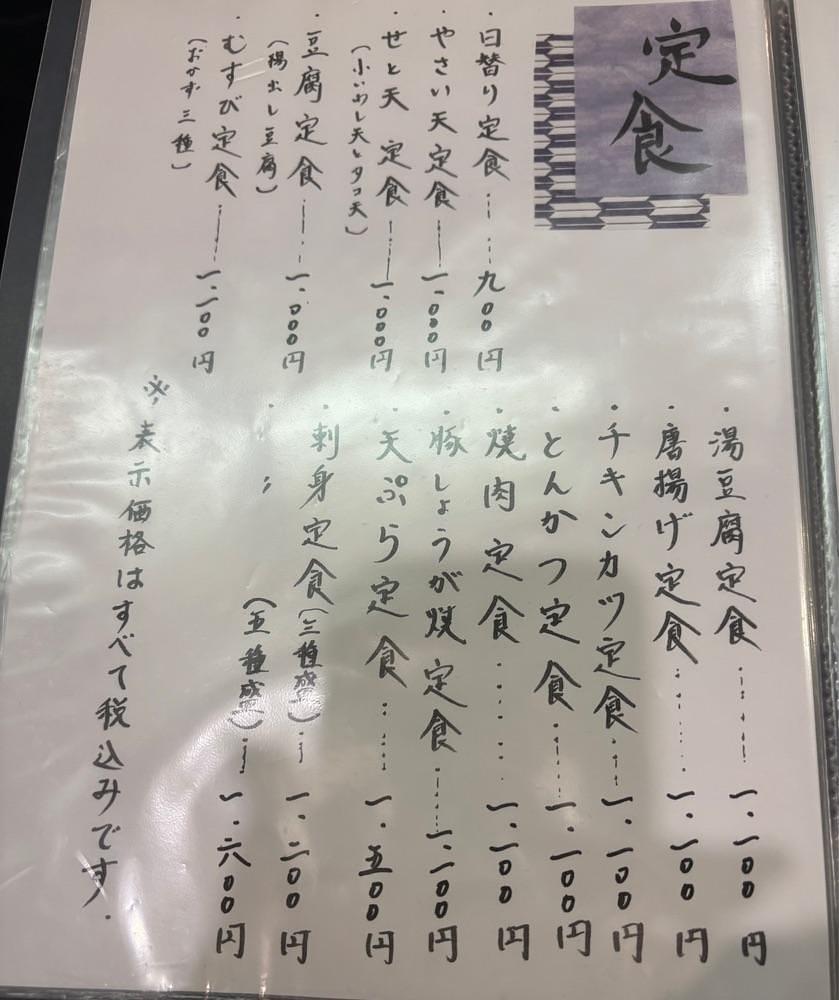 定食
・日替り定食……九〇〇円
・やさい天定食……一、〇〇〇円
・せと天定食……一、〇〇〇円
(小いわし天とタコ天)
・豆腐定食……一、〇〇〇円
(揚出し豆腐)
・むすび定食……一、一〇〇円
(おかず三種)
・湯豆腐定食……一、一〇〇円
・唐揚げ定食……一、一〇〇円
・チキンカツ定食……一、一〇〇円
・とんかつ定食……一、一〇〇円
・焼肉定食……一、一〇〇円
・豚しょうが焼定食……一、一〇〇円
・天ぷら定食……一、五〇〇円
・刺身定食(三種盛)……一、二〇〇円
・〃(五種盛)……一、六〇〇円
※表示価格はすべて税込みです.